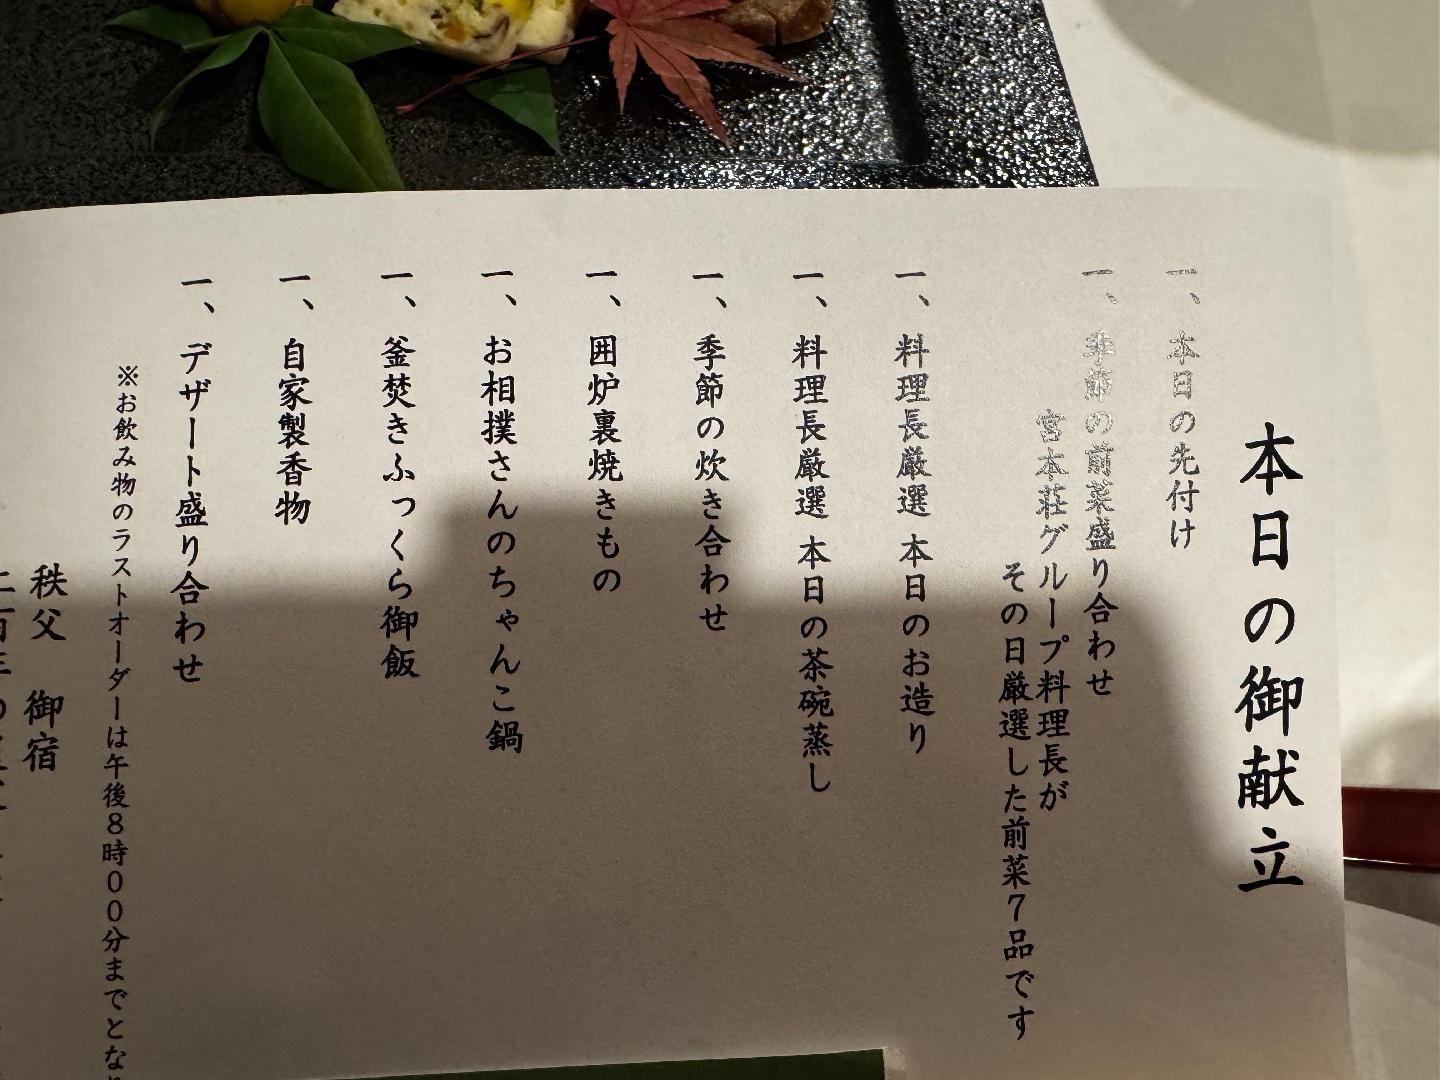 本日の御献立
一、本日の先付け
一、季節の前菜盛り合わせ
宮本荘グループ料理長が
その日厳選した前菜7品です
一、料理長厳選 本日のお造り
一、料理長厳選 本日の茶碗蒸し
一、季節の炊き合わせ
一、囲炉裏焼きもの
一、お相撲さんのちゃんこ鍋
一、釜焚きふっくら御飯
一、自家製香物
一、デザート盛り合わせ
※お飲み物のラストオーダーは午後8時00分までとな
秩父 御宿